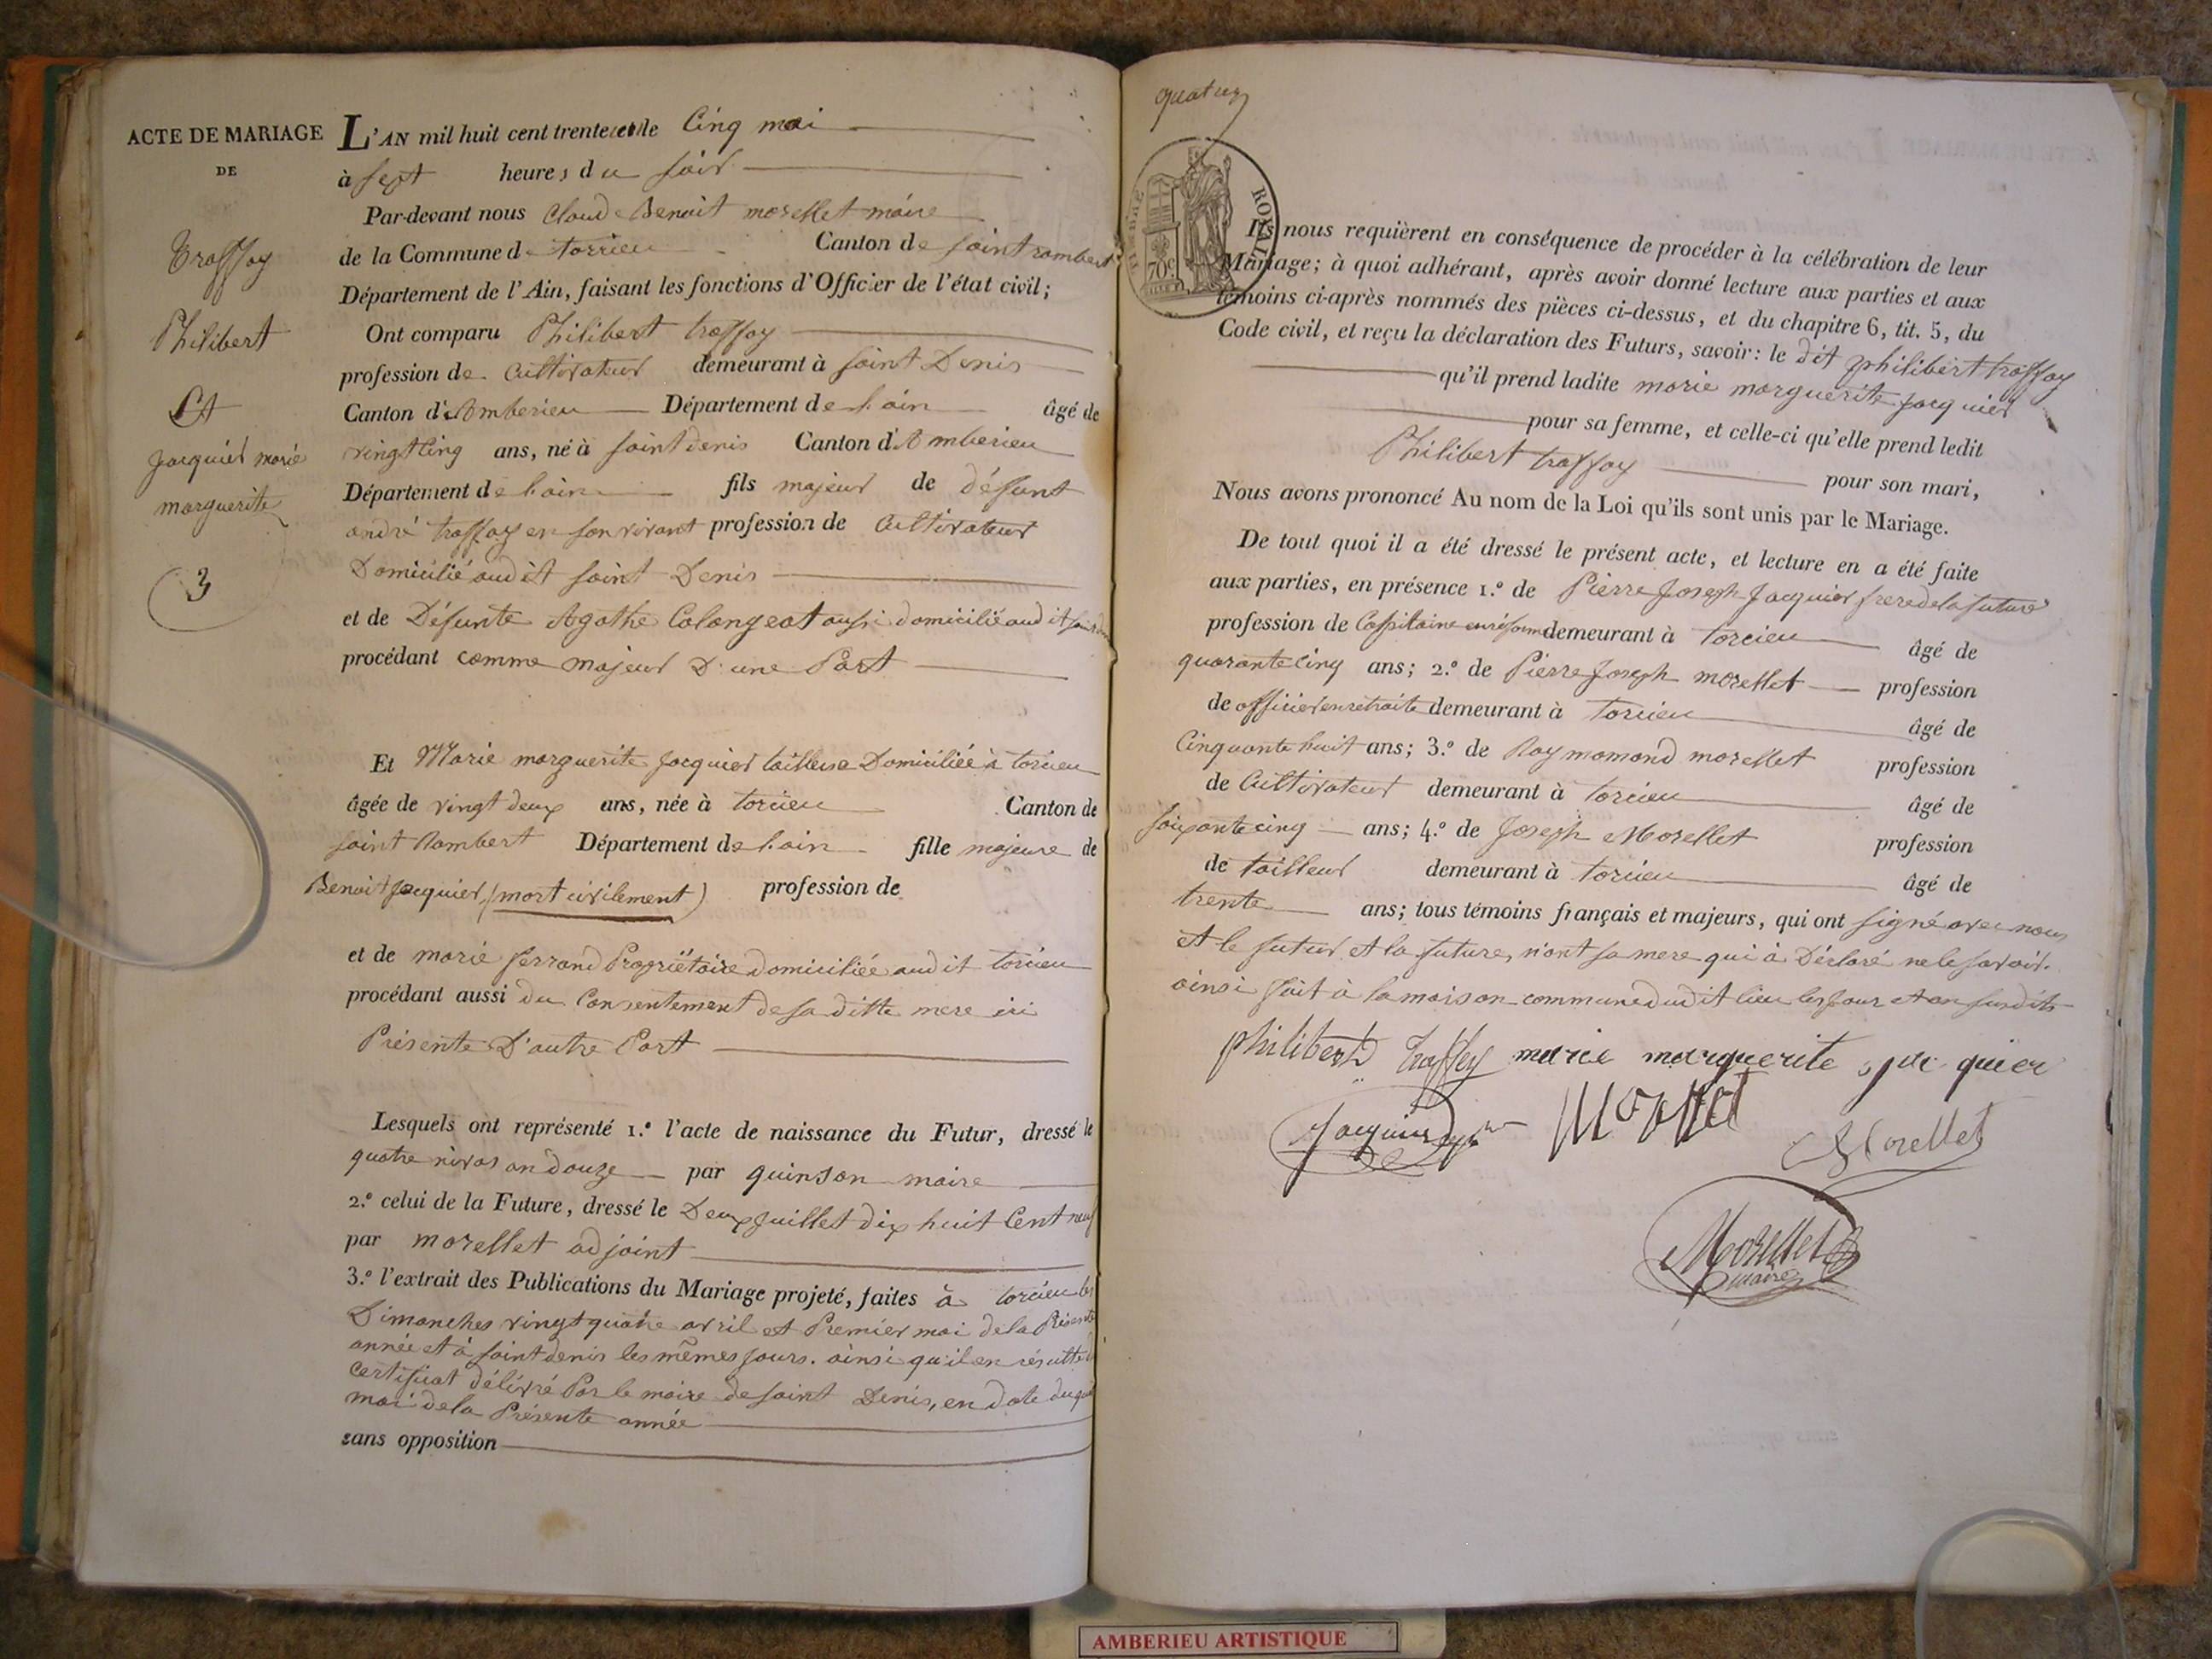 ACTE DE MARIAGE
DE
Traffay
Philibert
Et
Jacquier marie
marguerite
3
L'AN mil huit cent trente et le Cinq mai
à sept heures du soir
Par-devant nous Claude Benoit morellet maire
de la Commune de torcieu Canton de saint rambert
Département de l'Ain, faisant les fonctions d'Officier de l'état civil;
Ont comparu Philibert traffay
profession de Cultivateur demeurant à saint Denis
Canton d'Amberieu Département de l'ain âgé de
vingt Cinq ans, né à saint denis Canton d'Amberieu
Département de l'ain fils majeur de défunt
andré traffay en son vivant profession de Cultivateur
Domicilié audit saint Denis
et de Défunte Agathe Colongeat aussi domicilié audit
procédant comme majeur D'une Part
Et Marie marguerite Jacquier tailleuse Domiciliée à torcieu
âgée de vingt deux ans, née à torcieu Canton de
saint Rambert Département de l'ain fille majeure de
Benoit Jacquier, (mort civilement) profession de
et de marie ferrand Propriétaire domiciliée audit torcieu
procédant aussi du Consentement de sa ditte mere ici
Présente D'autre Part
Lesquels ont représenté 1.º l'acte de naissance du Futur, dressé le
quatre nivos an douze par quinson maire
2.º celui de la Future, dressé le Deux Juillet dix huit Cent neuf
par morellet adjoint
3.º l'extrait des Publications du Mariage projeté, faites à torcieu les
Dimanches vingt quatre avril et Premier mai de la Présente
année et à saint denis les mêmes Jours. ainsi qu'il en résulte
Certificat délivré Par le maire de saint Denis, en date du
mai de la Présente année
sans opposition
quatre
TIMBRE ROYAL
70c
Ils nous requièrent en conséquence de procéder à la célébration de leur
Mariage; à quoi adhérant, après avoir donné lecture aux parties et aux
témoins ci-après nommés des pièces ci-dessus, et du chapitre 6, tit. 5, du
Code civil, et reçu la déclaration des Futurs, savoir: le dit philibert traffay
qu'il prend ladite marie marguerite Jacquier
pour sa femme, et celle-ci qu'elle prend ledit
Philibert traffay pour son mari,
Nous avons prononcé Au nom de la Loi qu'ils sont unis par le Mariage.
De tout quoi il a été dressé le présent acte, et lecture en a été faite
aux parties, en présence 1.º de Pierre Joseph Jacquier frere de la future
profession de Cappitaine demeurant à torcieu âgé de
quarante cinq ans; 2.º de Pierre Joseph morellet profession
de officier en retraite demeurant à torcieu âgé de
Cinquante huit ans; 3.º de Raymomond morellet profession
de Cultivateur demeurant à torcieu âgé de
soixante cinq ans; 4.º de Joseph Morellet profession
de tailleur demeurant à torcieu âgé de
trente ans; tous témoins français et majeurs, qui ont signé avec nous
et le futur et la future, non sa mere qui à Déclaré ne le savoir.
ainsi fait à la maison commune dudit lieu les Jour et an susdits
philibert traffey marie marguerite jacquier
Jacquier Morellet
Morellet
Morellet
maire
AMBERIEU ARTISTIQUE